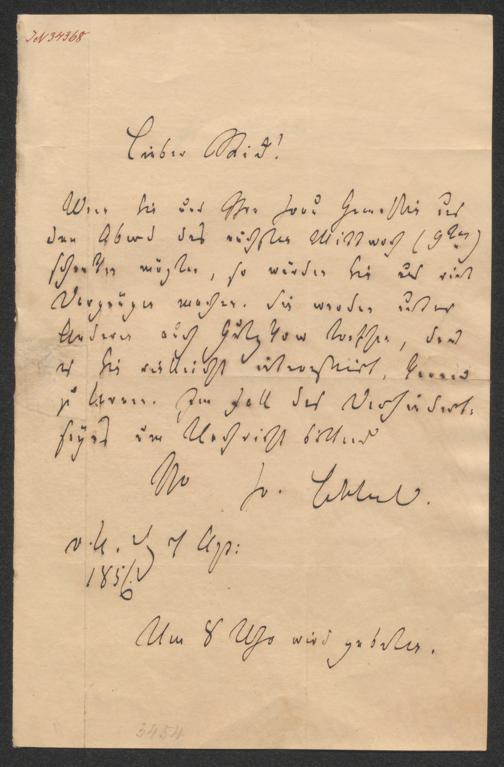 JN 34368
Lieber
Wenn Sie und Ihre Frau Gemahlin uns
den Abend des nächsten Mittwoch (9ten)
schenken möchten, so würden Sie uns viel
Vergnügen machen. Sie werden unter
Anderen auch Gutzkow treffen, den
es Sie vielleicht interessirt, kennen
zu lernen. Im Fall des Verhindert-
seyns um Nachricht bittend
Ihr
7 Apr:
185
Um 8 Uhr wird gebeten.
3454